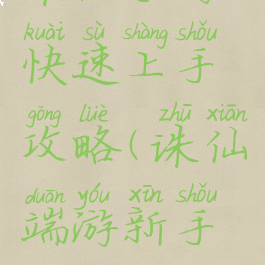 kuài sù shàng shǒu
快速上手
gōng lüè zhū xiān
攻略(诛仙
duān yóu xīn shǒu
端游新手